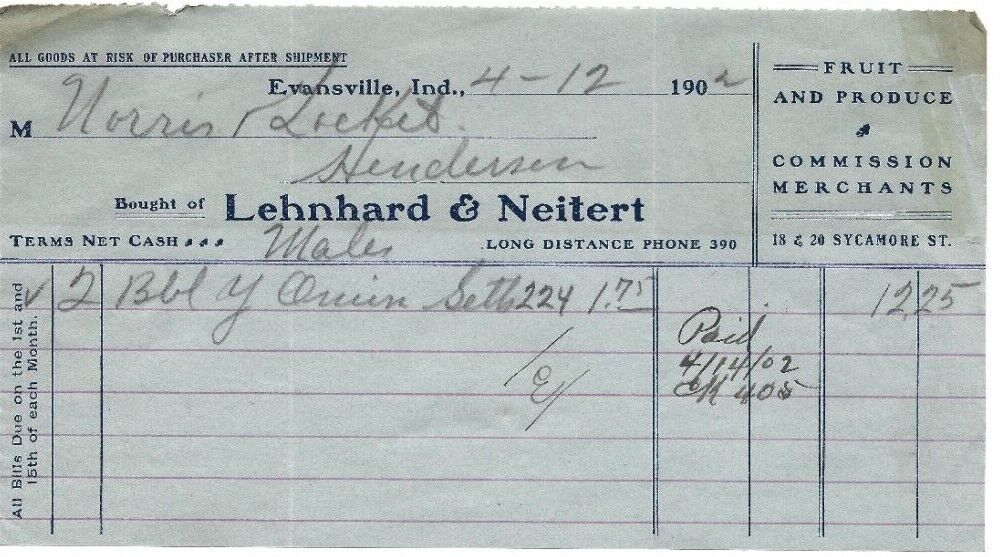 ALL GOODS AT RISK OF PURCHASER AFTER SHIPMENT
Evansville, Ind., 4-12 1902
M Norris & Locket
Henderson
Bought of Lehnhard & Neifert
TERMS NET CASH
LONG DISTANCE PHONE 390
FRUIT
AND PRODUCE
COMMISSION
MERCHANTS
18 & 20 SYCAMORE ST.
All Bills Due on the 1st and
15th of each Month.
√ 2 Bbl Y Onion Setts 224 1.75 12 25
Paid
4/14/02
CK 405